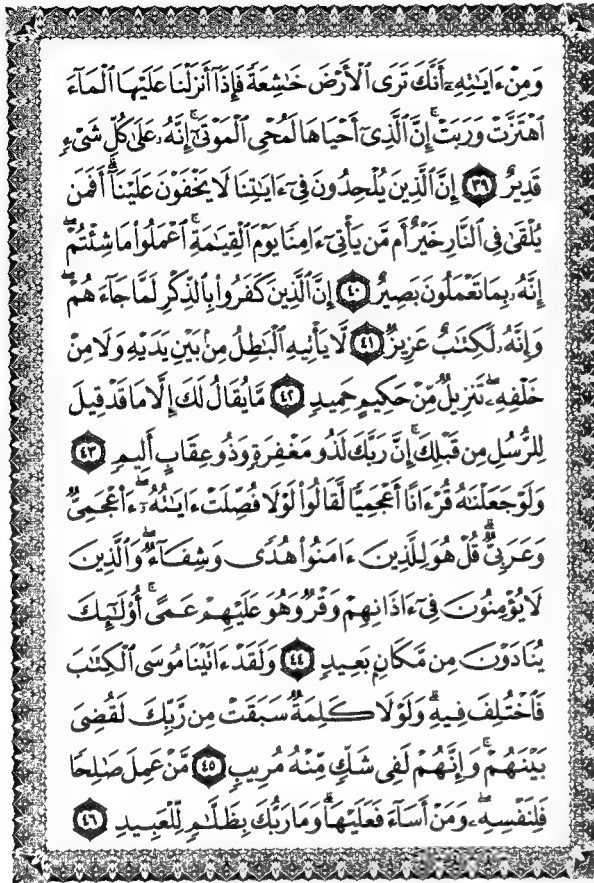 وَمِنْ ءَايَٰتِهِۦٓ أَنَّكَ تَرَى ٱلْأَرْضَ خَٰشِعَةً فَإِذَآ أَنزَلْنَا عَلَيْهَا ٱلْمَآءَ
ٱهْتَزَّتْ وَرَبَتْ ۚ إِنَّ ٱلَّذِىٓ أَحْيَاهَا لَمُحْىِ ٱلْمَوْتَىٰٓ ۚ إِنَّهُۥ عَلَىٰ كُلِّ شَىْءٍ
قَدِيرٌ ٣٩ إِنَّ ٱلَّذِينَ يُلْحِدُونَ فِىٓ ءَايَٰتِنَا لَا يَخْفَوْنَ عَلَيْنَآ ۗ أَفَمَن
يُلْقَىٰ فِى ٱلنَّارِ خَيْرٌ أَم مَّن يَأْتِىٓ ءَامِنًا يَوْمَ ٱلْقِيَٰمَةِ ۚ ٱعْمَلُوا۟ مَا شِئْتُمْ ۖ
إِنَّهُۥ بِمَا تَعْمَلُونَ بَصِيرٌ ٤٠ إِنَّ ٱلَّذِينَ كَفَرُوا۟ بِٱلذِّكْرِ لَمَّا جَآءَهُمْ ۖ
وَإِنَّهُۥ لَكِتَٰبٌ عَزِيزٌ ٤١ لَّا يَأْتِيهِ ٱلْبَٰطِلُ مِنۢ بَيْنِ يَدَيْهِ وَلَا مِنْ
خَلْفِهِۦ ۖ تَنزِيلٌ مِّنْ حَكِيمٍ حَمِيدٍ ٤٢ مَّا يُقَالُ لَكَ إِلَّا مَا قَدْ قِيلَ
لِلرُّسُلِ مِن قَبْلِكَ ۚ إِنَّ رَبَّكَ لَذُو مَغْفِرَةٍ وَذُو عِقَابٍ أَلِيمٍ ٤٣
وَلَوْ جَعَلْنَٰهُ قُرْءَانًا أَعْجَمِيًّا لَّقَالُوا۟ لَوْلَا فُصِّلَتْ ءَايَٰتُهُۥٓ ۖ ءَا۬عْجَمِىٌّ
وَعَرَبِىٌّ ۗ قُلْ هُوَ لِلَّذِينَ ءَامَنُوا۟ هُدًى وَشِفَآءٌ ۖ وَٱلَّذِينَ
لَا يُؤْمِنُونَ فِىٓ ءَاذَانِهِمْ وَقْرٌ وَهُوَ عَلَيْهِمْ عَمًى ۚ أُو۟لَٰٓئِكَ
يُنَادَوْنَ مِن مَّكَانٍۭ بَعِيدٍ ٤٤ وَلَقَدْ ءَاتَيْنَا مُوسَى ٱلْكِتَٰبَ
فَٱخْتُلِفَ فِيهِ ۗ وَلَوْلَا كَلِمَةٌ سَبَقَتْ مِن رَّبِّكَ لَقُضِىَ
بَيْنَهُمْ ۚ وَإِنَّهُمْ لَفِى شَكٍّ مِّنْهُ مُرِيبٍ ٤٥ مَّنْ عَمِلَ صَٰلِحًا
فَلِنَفْسِهِۦ ۖ وَمَنْ أَسَآءَ فَعَلَيْهَا ۗ وَمَا رَبُّكَ بِظَلَّٰمٍ لِّلْعَبِيدِ ٤٦